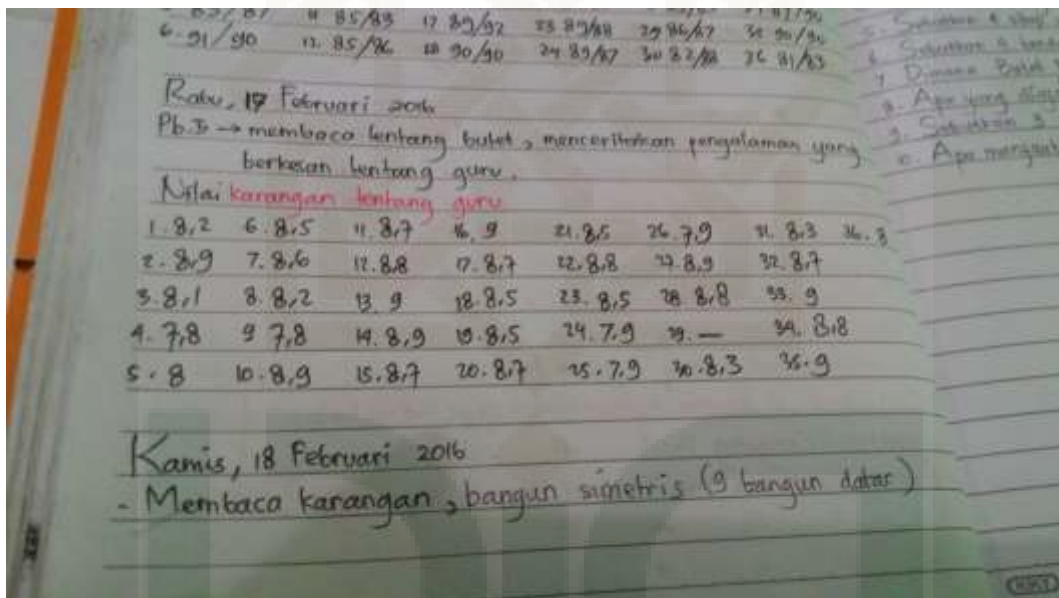 11 85/83 17 89/92 23 89/88 29 86/87
6. 91/90 12. 85/86 18 90/90 24 89/87 30 82/88 36 81/83
Rabu, 17 Februari 2016
Pb.I → membaca tentang bulet, menceritakan pengalaman yang
berkesan tentang guru.
Nilai karangan tentang guru
1. 8,2 6. 8,5 11. 8,7 16. 9 21. 8,5 26. 7,9 31. 8,3 36. 8
2. 8,9 7. 8,6 12. 8,8 17. 8,7 22. 8,8 27. 8,9 32. 8,7
3. 8,1 8. 8,2 13. 9 18. 8,5 23. 8,5 28. 8,8 33. 9
4. 7,8 9 7,8 14. 8,9 19. 8,5 24. 7,9 29. — 34. 8,8
5. 8 10. 8,9 15. 8,7 20. 8,7 25. 7,9 30. 8,3 35. 9
Kamis, 18 Februari 2016
- Membaca karangan, bangun simetris (9 bangun datar)